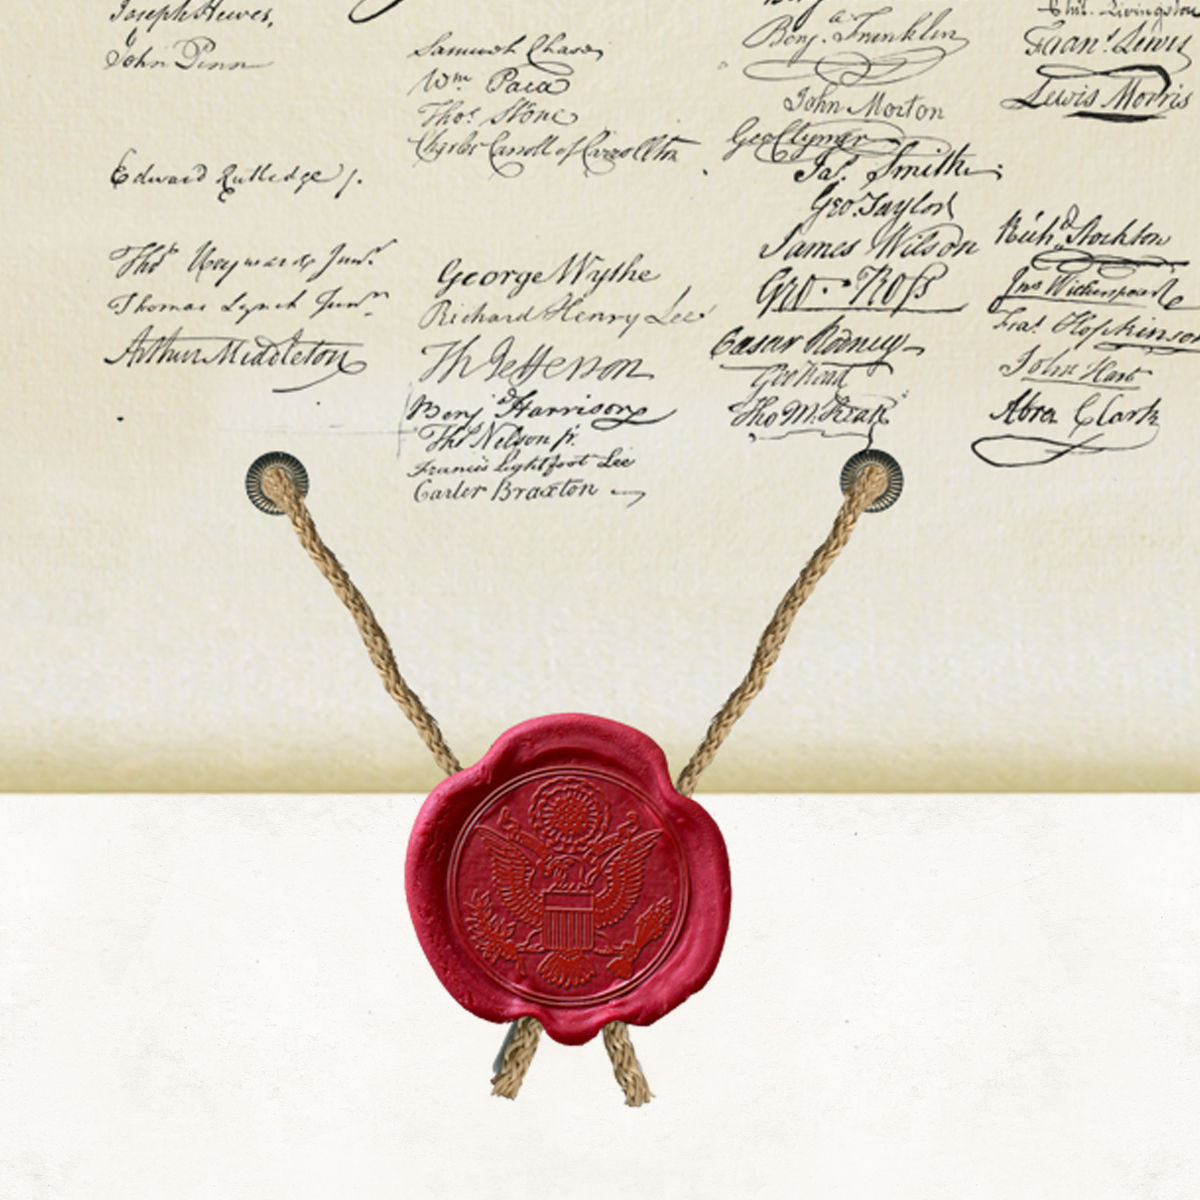 Joseph Hewes,
John Penn
Edward Rutledge /.
Thoˢ Heyward Junʳ.
Thomas Lynch Junʳ.
Arthur Middleton
Samuel Chase
Wᵐ Paca
Thoˢ Stone
Charles Carroll of Carrollton
George Wythe
Richard Henry Lee
Th Jefferson
Benjᵃ Harrison
Thoˢ Nelson jr.
Francis Lightfoot Lee
Carter Braxton
Benjᵃ Franklin
John Morton
Geo Clymer
Jaˢ. Smith
Geo. Taylor
James Wilson
Geo. Ross
Caesar Rodney
Geo Read
Tho M:Kean
Phil. Livingston
Franˢ Lewis
Lewis Morris
Richᵈ Stockton
Jnᵒ Witherspoon
Fraˢ Hopkinson
John Hart
Abra Clark